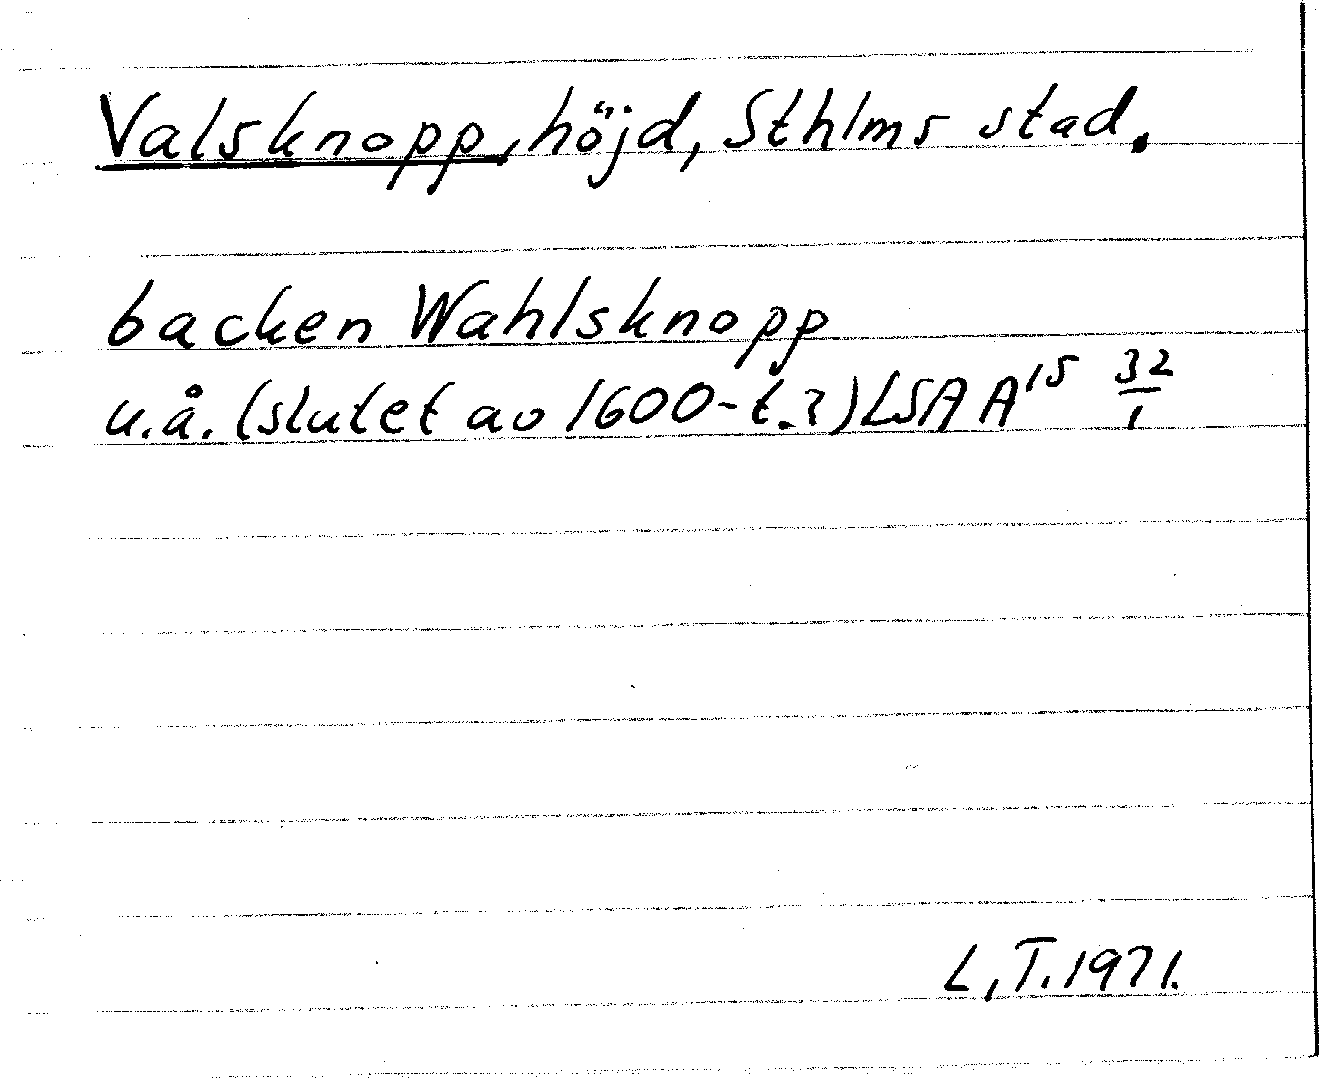 Valsknopp, höjd, Sthlms stad.
backen Wahlsknopp
u.å. (slutet av 1600-t.?) LSA A¹⁵ 32/1
L.T. 1971.